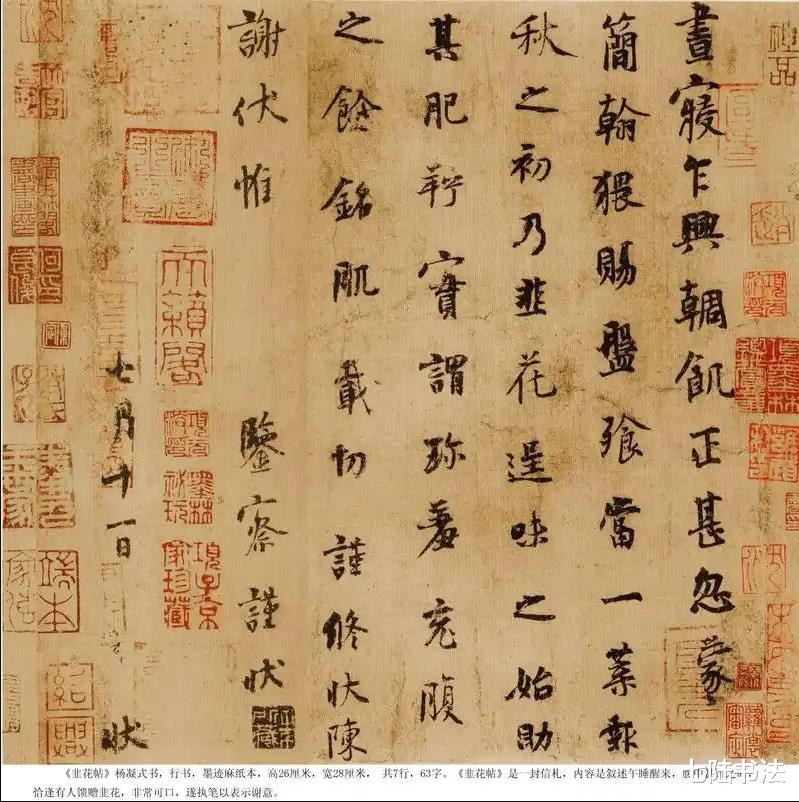 晝寢乍興輖飢正甚忽蒙
簡翰猥賜盤飡當一葉報
秋之初乃韭花逞味之始助
其肥羜實謂珍羞充腹
之餘銘肌載切謹修狀陳
謝伏惟 鑒察謹狀
七月十一日 狀
天籟閣
項子京家珍藏
墨林祕玩
紹興
《韭花帖》杨凝式书，行书，墨迹麻纸本，高26厘米，宽28厘米， 共7行，63字。《韭花帖》是一封信札，内容是叙述午睡醒来，腹中
恰逢有人馈赠韭花，非常可口，遂执笔以表示谢意。
七陆书法